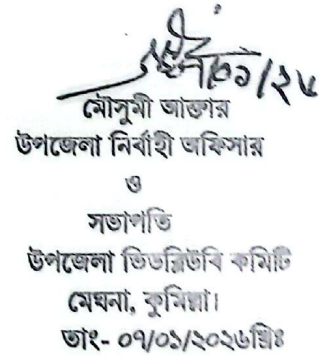 মৌসুমী আক্তার
উপজেলা নির্বাহী অফিসার
ও
সভাপতি
উপজেলা ভিডব্লিউবি কমিটি
মেঘনা, কুমিল্লা।
তাং- ০৭/০১/২০২৬খ্রিঃ